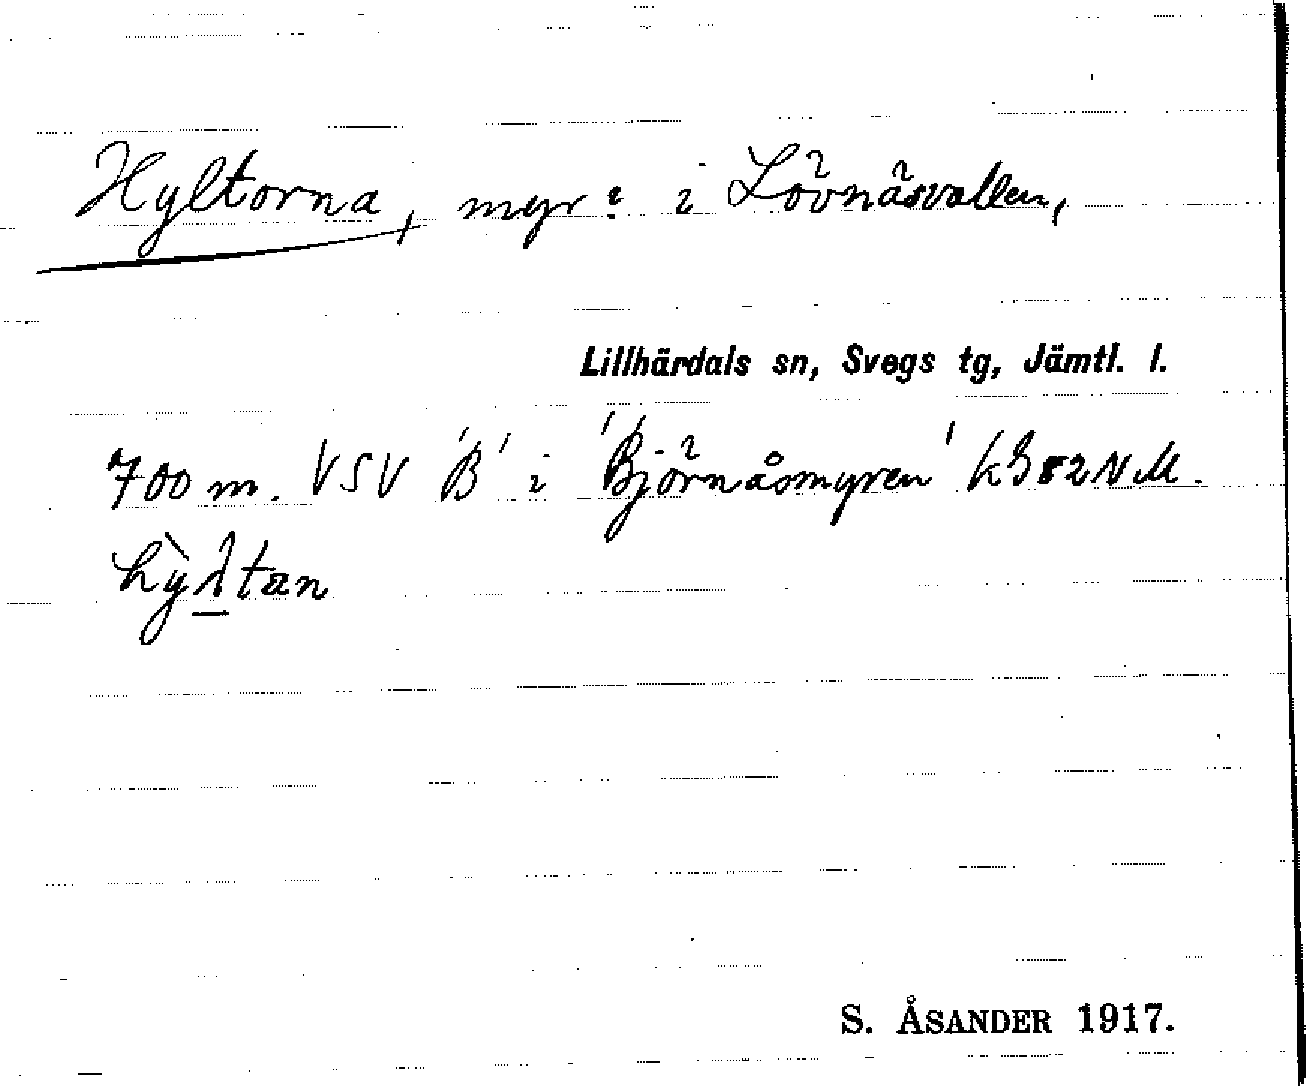 Hyltorna, myr: i Lövnäsvallen,
Lillhärdals sn, Svegs tg, Jämtl. l.
700 m. VSV 'B' i 'Björnåsmyren' k 982 NM.
hỳλtan
S. ÅSANDER 1917.